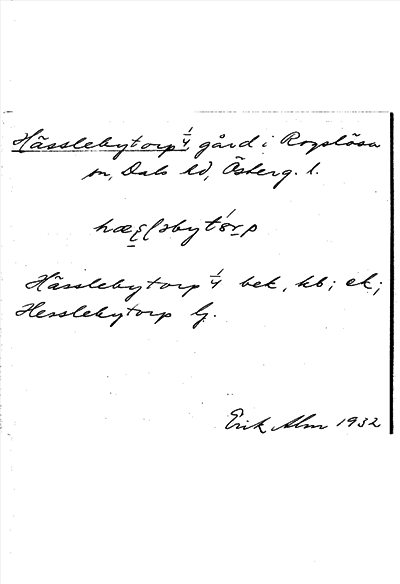 Hässlebytorp 1/4, gård i Rogslösa
sn, Dals hd, Österg. l.
Hässlebytorp 1/4 bek, kb; ek;
Hesslebytorp lj.
Erik Alm 1932